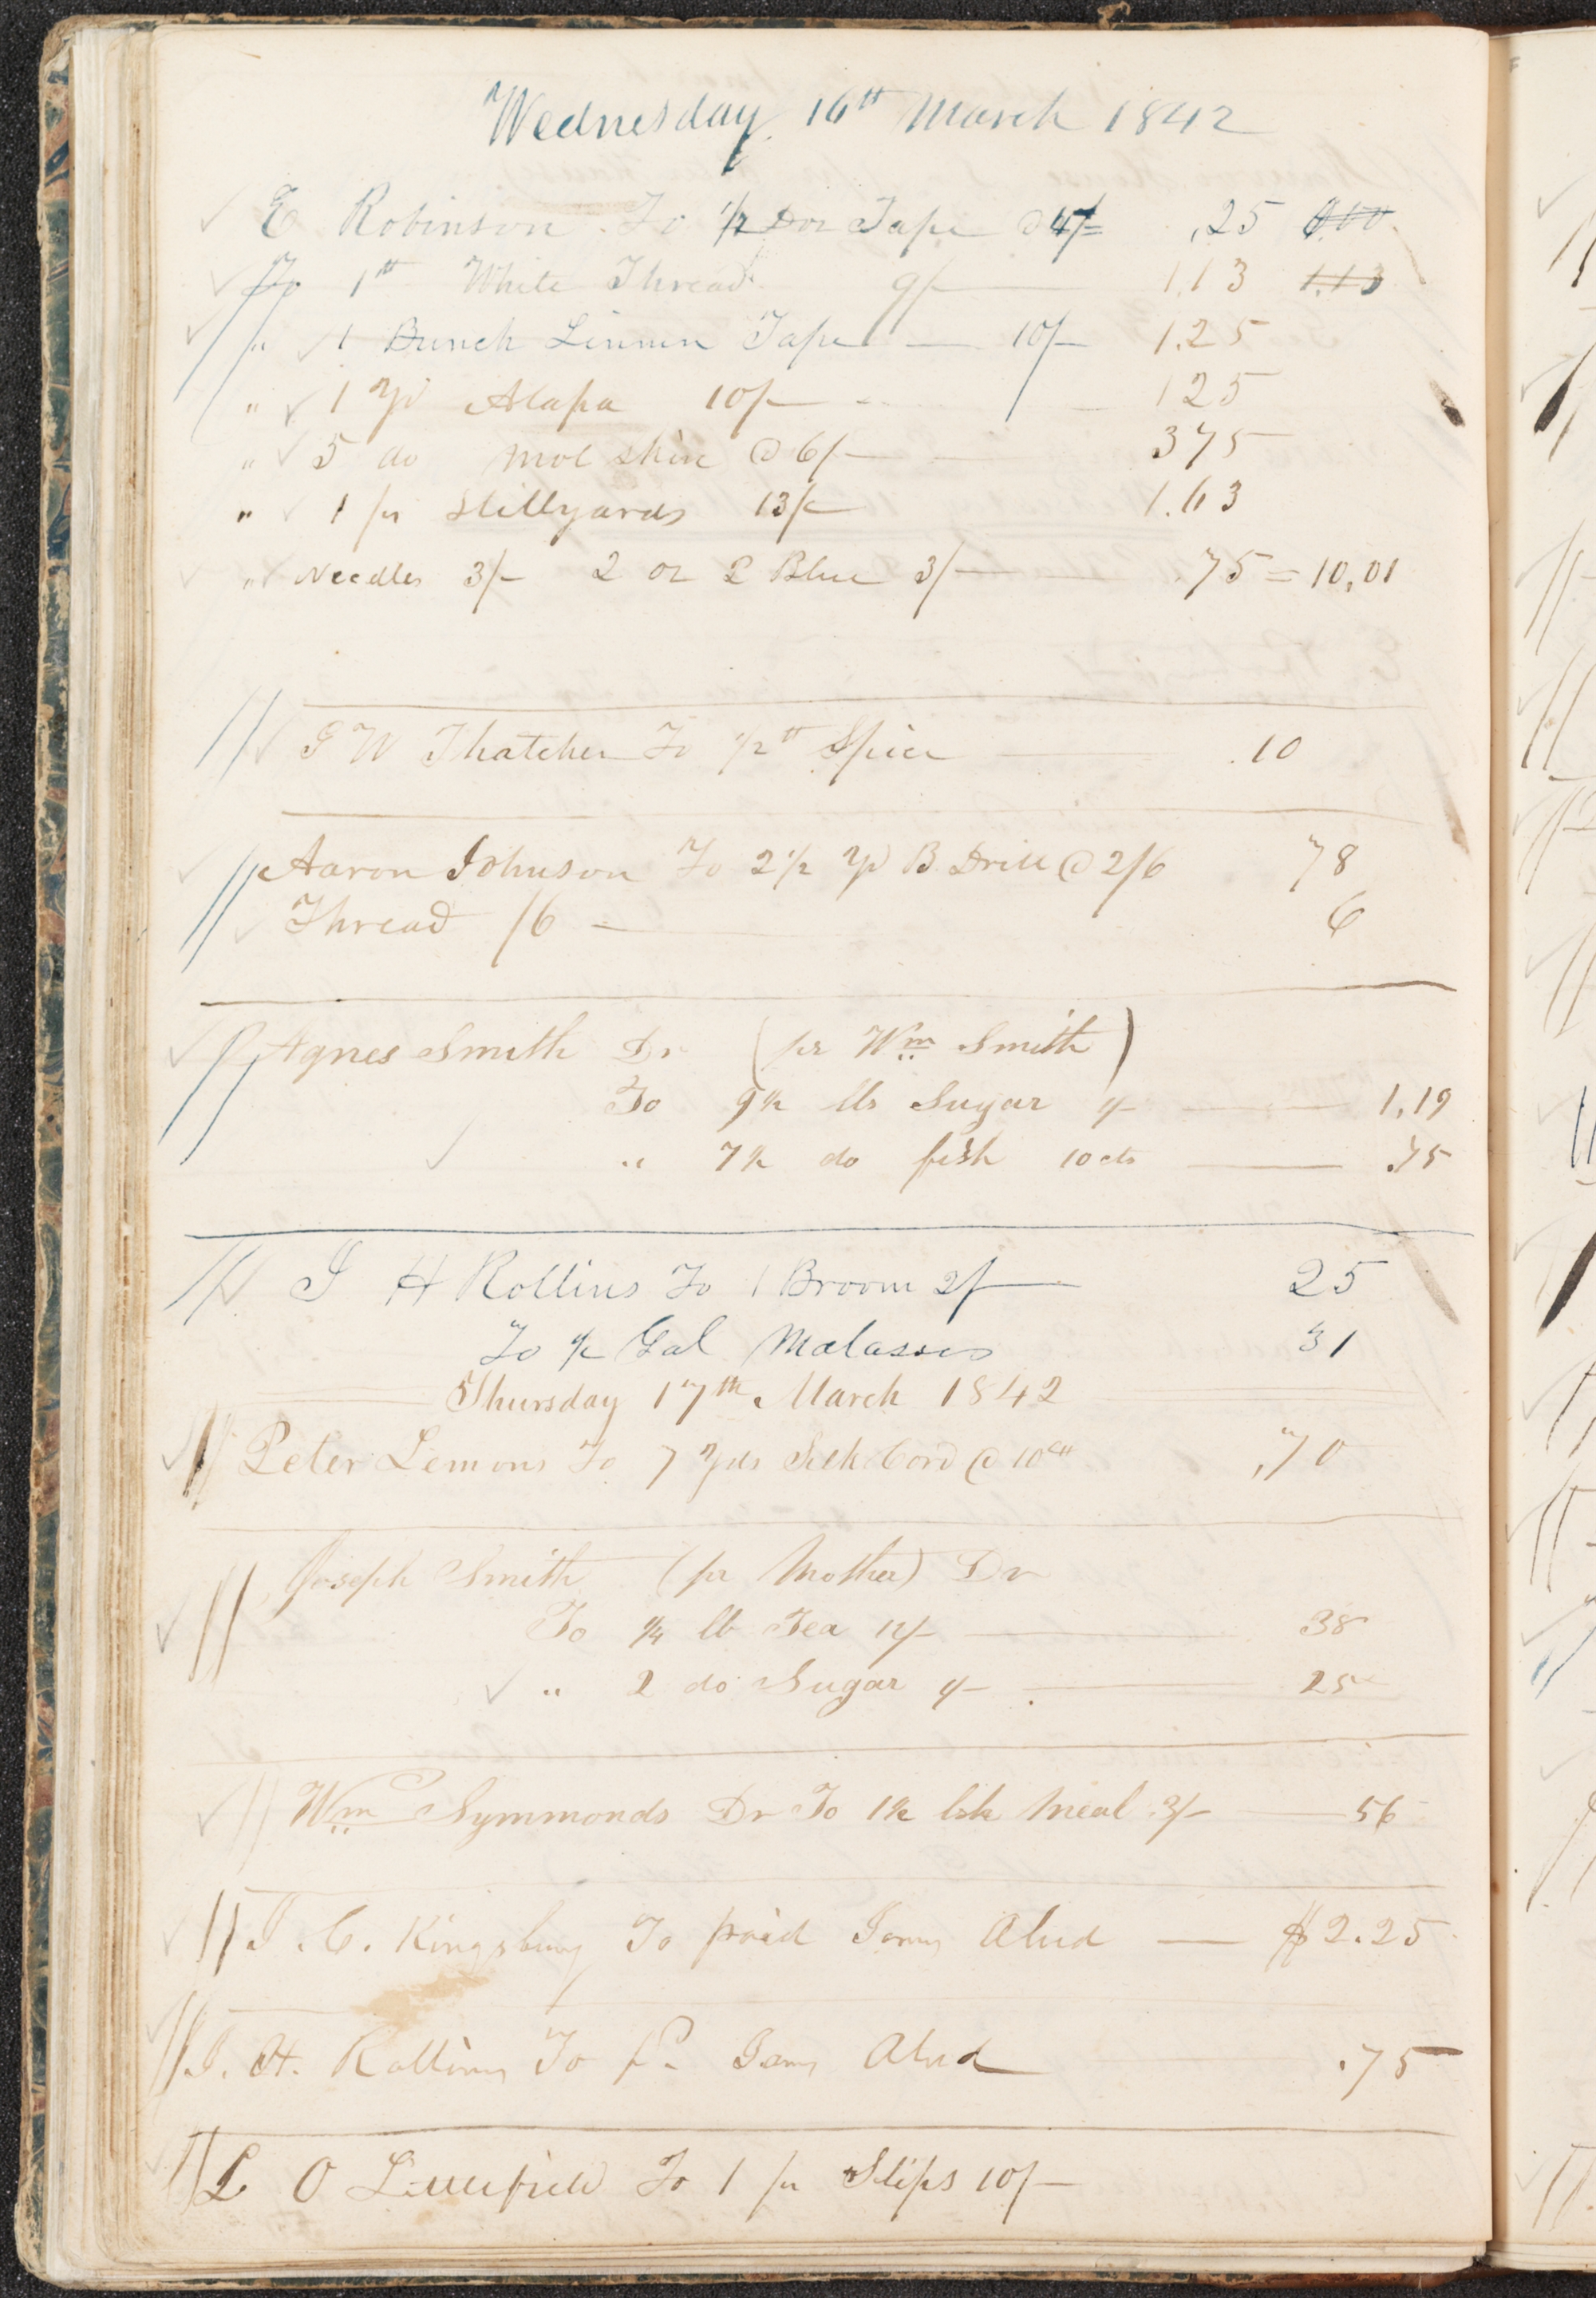 Wednesday 16th March 1842
E Robinson To 1/2 Doz Tape @ 4/= .25
To 1 tt White Thread 9/— 1.13 1.13
" 1 Bunch Linnen Tape — 10/— 1.25
" 1 yd Alapa 10/— 125
" 5 do Mol Skin @ 6/— 375
" 1 pr Stillyards 13/— 1.63
" Needles 3/— 2 oz P Blue 3/— .75 = 10,01
J W Thatcher To 1/2 tt Spice .10
Aaron Johnson To 2 1/2 yd B Drill @ 2/6 78
Thread /6 — 6
Agnes Smith Dr (pr Wm Smith)
To 9 1/2 lbs Sugar 1/— 1,19
" 7 1/2 do fish 10 cts .75
J H Rollins To 1 Broom 2/— 25
To 1/2 Gal Malasses 31
Thursday 17th March 1842
Peter Lemons To 7 Yds Silk Cord @ 10 ct ,70
Joseph Smith (pr Mother) Dr
To 1/4 lb Tea 12/— 38
" 2 do Sugar 1/— 25
Wm Symmonds Dr To 1 1/2 bsh Meal 3/— 56
J. C. Kingsbury To paid Alred — $2.25
J. H. Rollins To P. Alred .75
L O Littlefield To 1 pr Slips 10/—